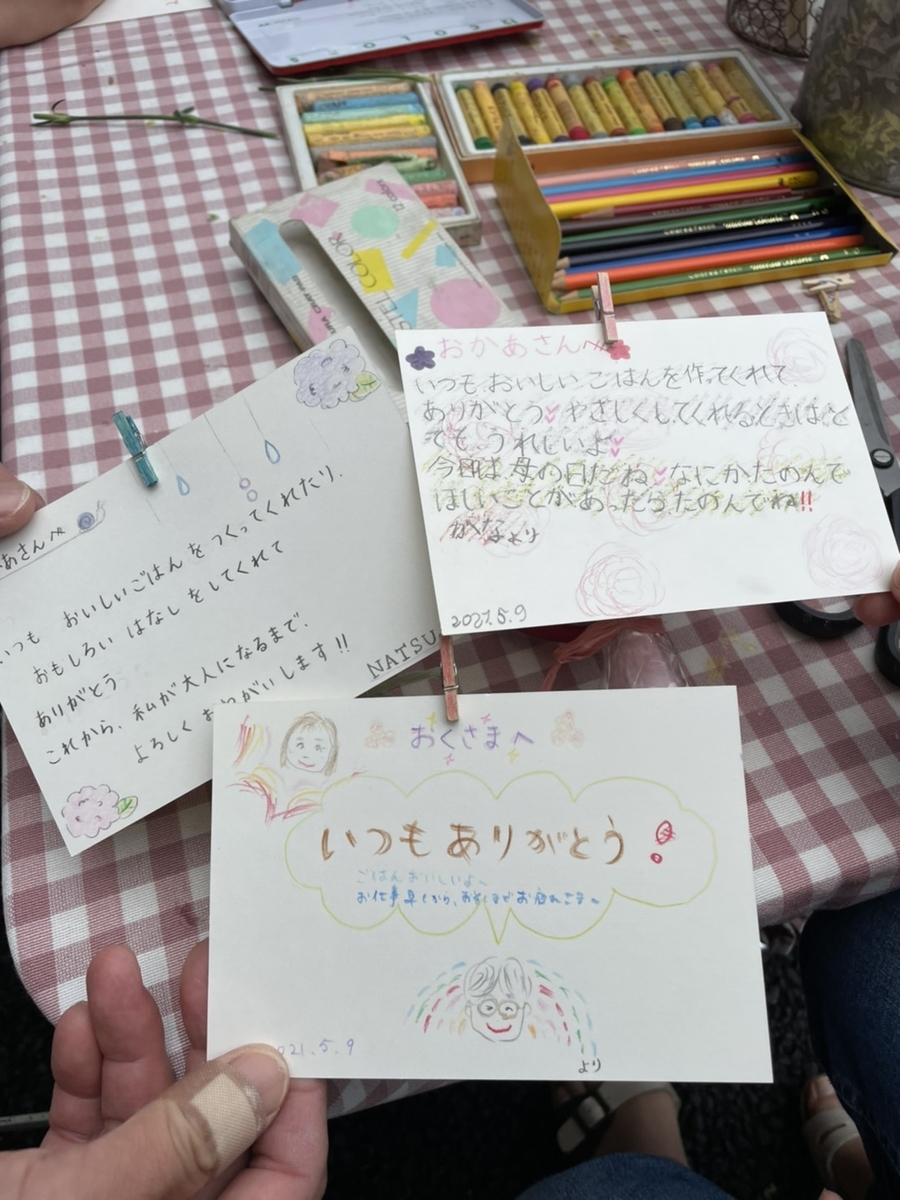 おかあさんへ
いつもおいしいごはんを作ってくれて
ありがとう やさしくしてくれるときはと
ても うれしいよ
今日は母の日だね なにかたのんで
ほしいことがあったらたのんでね!!
かなより
2021.5.9
あさんへ
いつも おいしいごはん をつくってくれたり、
おもしろい はなし をしてくれて
ありがとう
これから、私が大人になるまで、
よろしく おねがいします!!
NATSU
おくさまへ
いつもありがとう!
ごはんおいしいよ〜
お仕事 早くから、おそくまでお疲れさま〜
021.5.9
より
PASTEL COLOR
12 color